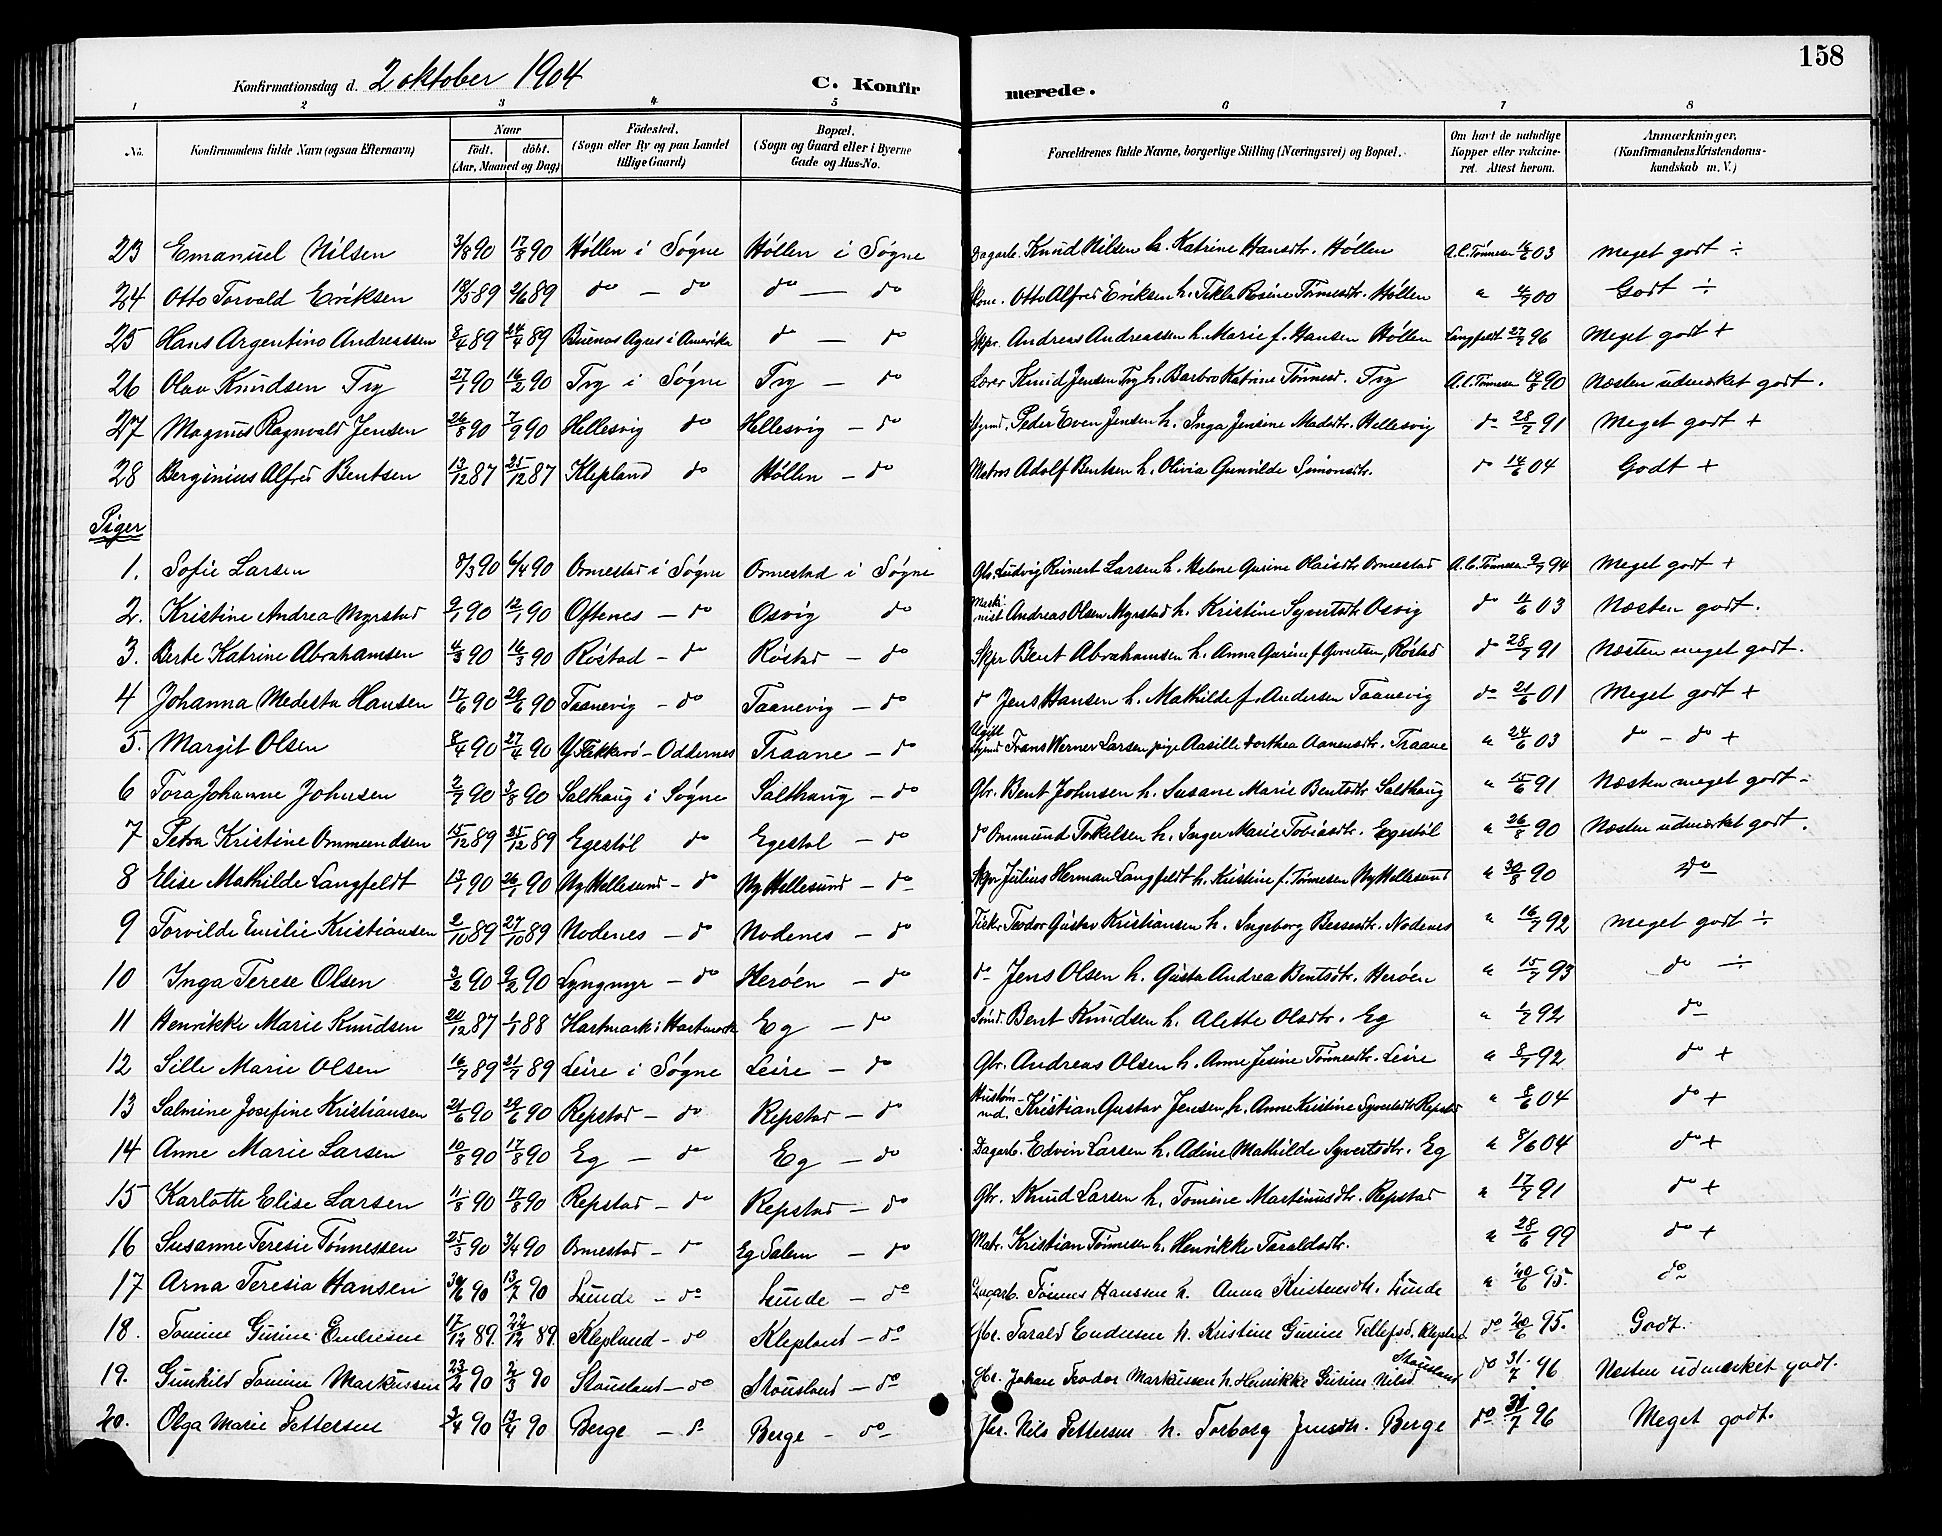 158
Konfirmationsdag d. 2 oktober 1904 C. Konfirmerede.
1 2 3 4 5 6 7 8
No. Konfirmandens fulde Navn (ogsaa Efternavn) Naar Født. døbt. (Aar, Maaned og Dag) Fødested. (Sogn eller By og paa Landet tillige Gaard) Bopæl. (Sogn og Gaard eller i Byerne Gade og Hus-No. Forældrenes fulde Navne, borgerlige Stilling (Næringsvei) og Bopæl. Om havt de naturlige Kopper eller vaccineret. Attest herom. Anmærkninger. (Konfirmandens Kristendomskundskab m. V.)
23 Emanuel Nilsen 3/8 90 17/8 90 Høllen i Søgne Høllen i Søgne Dagarb. Knud Nilsen h. Katrine Hansdtr. Høllen A.C. Tønnesen 03 Meget godt ÷
24 Otto Torvald Eriksen 18/5 89 2/6 89 do — do do — do Otto Alfred Eriksen h. Tekla Rosine Tønnesdtr. Høllen " 00 Godt ÷
25 Hans Argentino Andreassen 8/4 89 24/4 89 Buenos Ayres i Amerika do — do Skpr. Andreas Andreassen h. Marie f. Hansen Høllen Langfeldt 27/7 96 Meget godt +
26 Olav Knudsen Try 27/1 90 16/2 90 Try i Søgne Try — do Lærer Knud Jensen Try h. Barbro Katrine Tønnesd. Try A.C. Tønnesen 19/8 90 Næsten udmærket godt.
27 Magnus Ragnvald Jensen 26/8 90 7/9 90 Hellesvig do Hellesvig — do Styrmd. Peder Even Jensen h. Inga Jensine Madsdtr. Hellesvig do 28/7 91 Meget godt +
28 Berginius Alfred Bentsen 13/12 87 25/12 87 Klepland do Høllen — do Matros Adolf Bentsen h. Olivia Gunvilde Simonsdtr. do 14/6 04 Godt +
Piger
1. Sofie Larsen 8/3 90 6/4 90 Ormestad i Søgne Ormestad i Søgne Gbr. Ludvig Reinert Larsen h. Helene Gurine Olaisdtr. Ormestad A.C. Tønnesen 9/7 94 Meget godt +
2. Kristine Andrea Myrstad 9/7 90 12/7 90 Oftenes — do Osvig do Maskinist Andreas Olsen Myrstad h. Kristine Syvertsdtr. Osvig do 11/6 03 Næsten godt.
3. Berte Katrine Abrahamsen 4/3 90 16/3 90 Røstad — do Røstad — do Skpr Bent Abrahamsen h. Anna Gurine f. Røstad do 28/7 91 Næsten meget godt.
4 Johanna Modesta Hansen 17/6 90 29/6 90 Taanevig — do Taanevig — do do Jens Hansen h. Mathilde f. Andersen Taanevig do 21/6 01 Meget godt +
5. Margit Olsen 8/4 90 27/4 90 Y. Flekkerø — Oddernes Traane — do Ugift Styrmd Frans Werner Larsen, pige Aasille Dorthea Aanensdtr. Traane " 24/6 03 do — do +
6 Tora Johanne Johnsen 2/7 90 3/8 90 Salthaug i Søgne Salthaug — do Gbr. Bent Johnsen h. Susane Marie Bentsdtr Salthaug " 15/6 91 Næsten meget godt —
7 Petra Kristine Ommundsen 15/12 89 25/12 89 Egestøl do Egestøl — do do Ommund Torkelsen h. Inger Marie Tobiasdtr. Egestøl " 26/8 90 Næsten udmærket godt.
8 Elise Mathilde Langfeldt 13/1 90 26/1 90 Ny Hellesund — do Ny Hellesund — do Skpr. Julius Herman Langfeldt h. Kristine f. Tønnesen Ny Hellesund " 30/8 90 do
9 Torvilde Emilie Kristiansen 2/10 89 27/10 89 Nodenes — do Nodenes — do Fisker Teodor Gustav Kristiansen h. Ingeborg Bessesdtr. Nodenes " 16/7 92 meget godt ÷
10 Inga Terese Olsen 3/2 90 9/2 90 Lyngmyr — do Herøen — do do Jens Olsen h. Gusta Andrea Bentsdtr. Herøen " 15/7 93 do ÷
11 Henrikke Marie Knudsen 21/12 87 1/1 88 Hartmark i Hartmark Eg — do Bent Knudsen h. Alette Olsdtr. Eg " 1/7 92 do
12 Sille Marie Olsen 16/7 89 21/7 89 Leire i Søgne Leire — do Gbr. Andreas Olsen h. Anne Jesine Tønnesdtr. Leire " 8/7 92 do +
13 Salmine Josefine Kristiansen 21/6 90 29/6 90 Repstad — do Repstad — do Hustømmd. Kristian Gustav Jensen h. Anne Kristine Syvertsdtr Repstad " 8/6 04 do +
14 Anne Marie Larsen 10/8 90 17/8 90 Eg — do Eg — do Dagarb. Edvin Larsen h. Adine Mathilde Syvertsdtr. Eg " 8/6 04 do +
15 Karlotte Elise Larsen 11/8 90 17/8 90 Repstad — do Repstad — do Gbr. Knud Larsen h. Tomine Martinusdtr. Repstad " 17/7 91 do +
16 Susanne Teresie Tønnessen 25/3 90 3/4 90 Ormestad — do Eg Salem — do Matr. Kristian Tønnesen h. Henrikke Taraldsdtr. " 28/6 99 do +
17 Arna Teresia Hansen 30/6 90 13/7 90 Lunde — do Lunde — do Dagarb. Tønnes Hanssen h. Anna Kristensdtr. Lunde " 20/6 95. do
18. Tomine Gurine Endresen 17/12 89. 22/12 89. Klepland — do Klepland — do Gbr. Tarald Endresen h. Kristine Gurine Tellefsd. Klepland do 20/6 95. Godt.
19. Gunhild Tomine Markussen 23/2 90 2/3 90 Stousland — do Stousland — do Gbr. Johan Teodor Markussen h. Henrikke Gurine Nilsd Stousland do 31/7 96 Næsten udmærket godt.
20. Olga Marie Pettersen 3/4 90 13/4 90 Berge — do Berge — do Gbr. Nils Pettersen h. Torborg Jensdtr. Berge do 31/7 96 Meget godt.